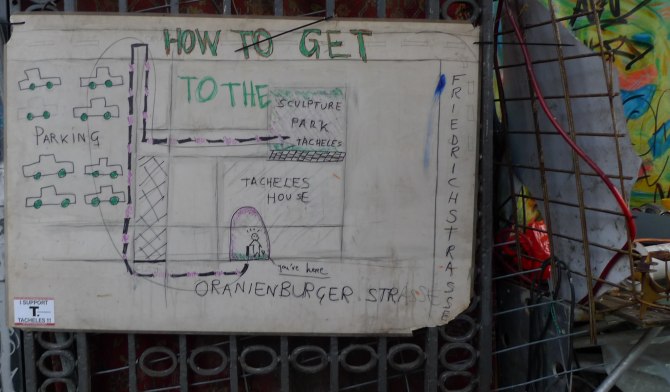 HOW TO GET
TO THE
SCULPTURE
PARK
TACHELES
PARKING
TACHELES
HOUSE
you're here
ORANIENBURGER STRASSE
FRIEDRICHSTRASSE
I SUPPORT
T.
TACHELES !!